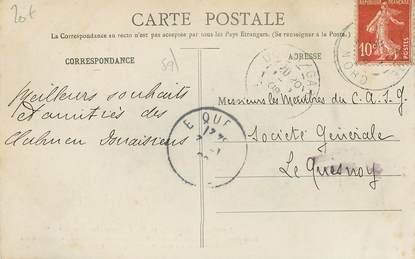 20f
CARTE POSTALE
La Correspondance au recto n'est pas acceptée par tous les Pays Étrangers. (Se renseigner à la Poste.)
CORRESPONDANCE
ADRESSE
10c
59
Meilleurs souhaits
et amitiés des
Messieurs les Membres du C.A.S.G.
Société Générale
Le Quesnoy